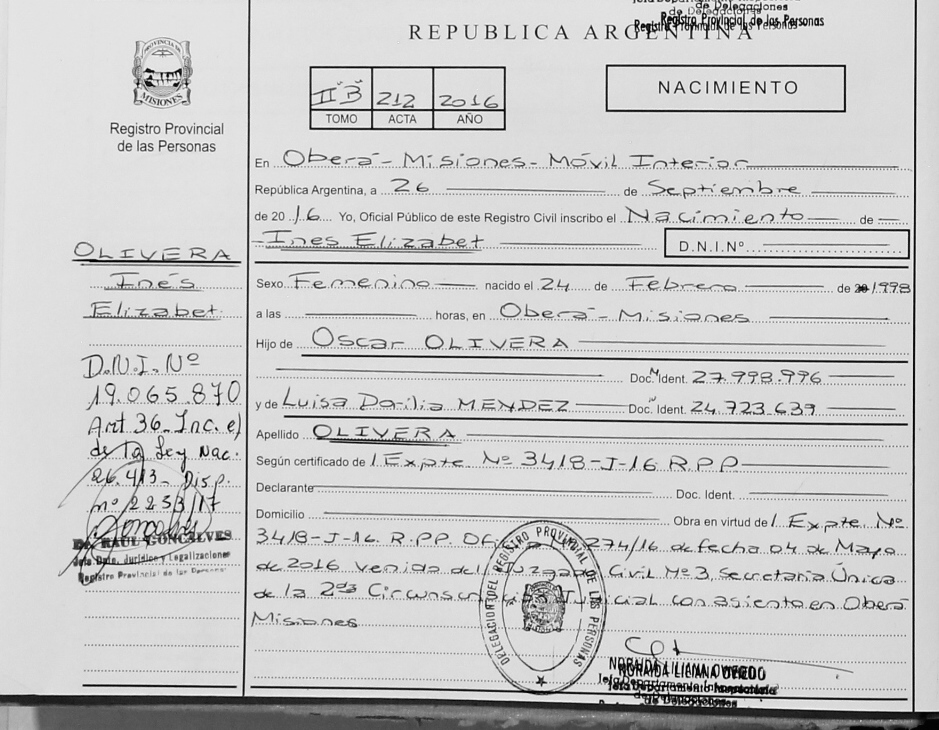 de Delegaciones
Registro Provincial de las Personas
REPUBLICA ARGENTINA
PROVINCIA DE
MISIONES
Registro Provincial
de las Personas
II B 212 2016
TOMO ACTA AÑO
NACIMIENTO
En Oberá - Misiones - Móvil Interior
República Argentina, a 26 de Septiembre
de 2016 Yo, Oficial Público de este Registro Civil inscribo el Nacimiento de
Ines Elizabet D.N.I.Nº
Sexo Femenino nacido el 24 de Febrero de 1998
a las horas, en Oberá - Misiones
Hijo de Oscar OLIVERA
Doc. Ident. 27.998.996
y de Luisa MENDEZ Doc. Ident. 24.723.639
Apellido OLIVERA
Según certificado de Expte Nº 3418-J-16 R.P.P
Declarante Doc. Ident.
Domicilio Obra en virtud de Expte Nº
3418-J-16. R.P.P. 274/16 de fecha 04 de Mayo
de 2016 venida del Juzgado Civil Nº 3, Secretaría Única
de la 2da Judicial con asiento en Oberá
Misiones
OLIVERA
Inés
Elizabet
D.N.I. Nº
19.065.870
Art 36 - Inc. e)
de la Ley Nac.
26.413 - Disp.
nº 2253/17
RAUL GONCALVES
Jefe Dpto. Jurídico y Legalizaciones
Registro Provincial de las Personas
DELEGACION DEL REGISTRO PROVINCIAL DE LAS PERSONAS
NORAIDA LILIANA
Jefa Departamento
de Delegaciones